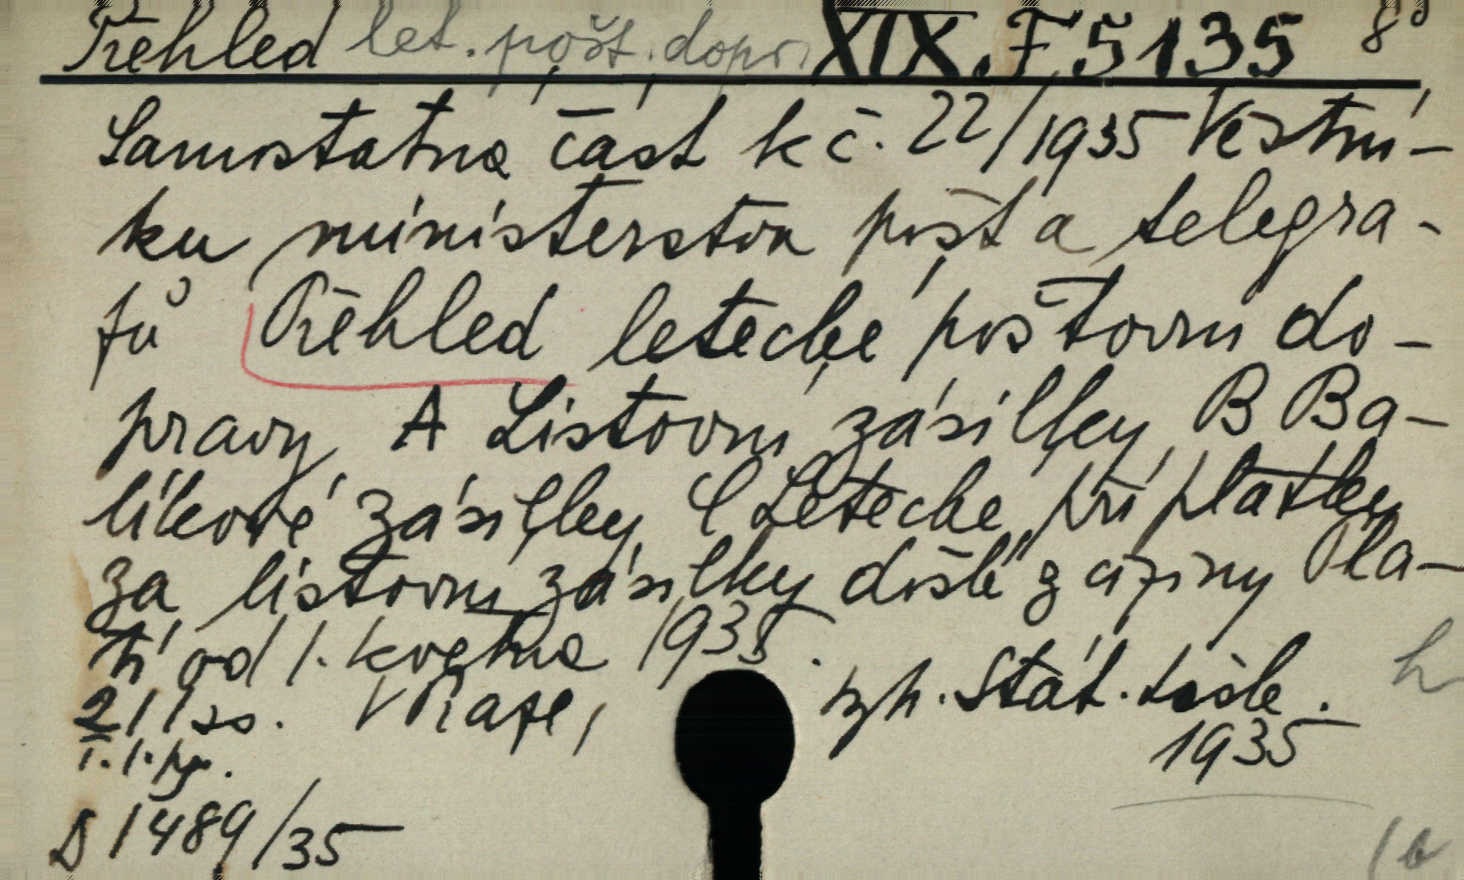 Přehled let. pošt. dopr. XIX.F5135 8°
Samostatná část k č. 22/1935 Věstní-
ku ministerstva pošt a telegra-
fů Přehled letecké poštovní do-
pravy A Listovní zásilky B Ba-
líkové zásilky C Letecké příplatky
za listovní zásilky došlé z ciziny Pla-
tí od 1. května 1935.
211 ss. V Praze, Stát. tisk.
1935
D 1489/35